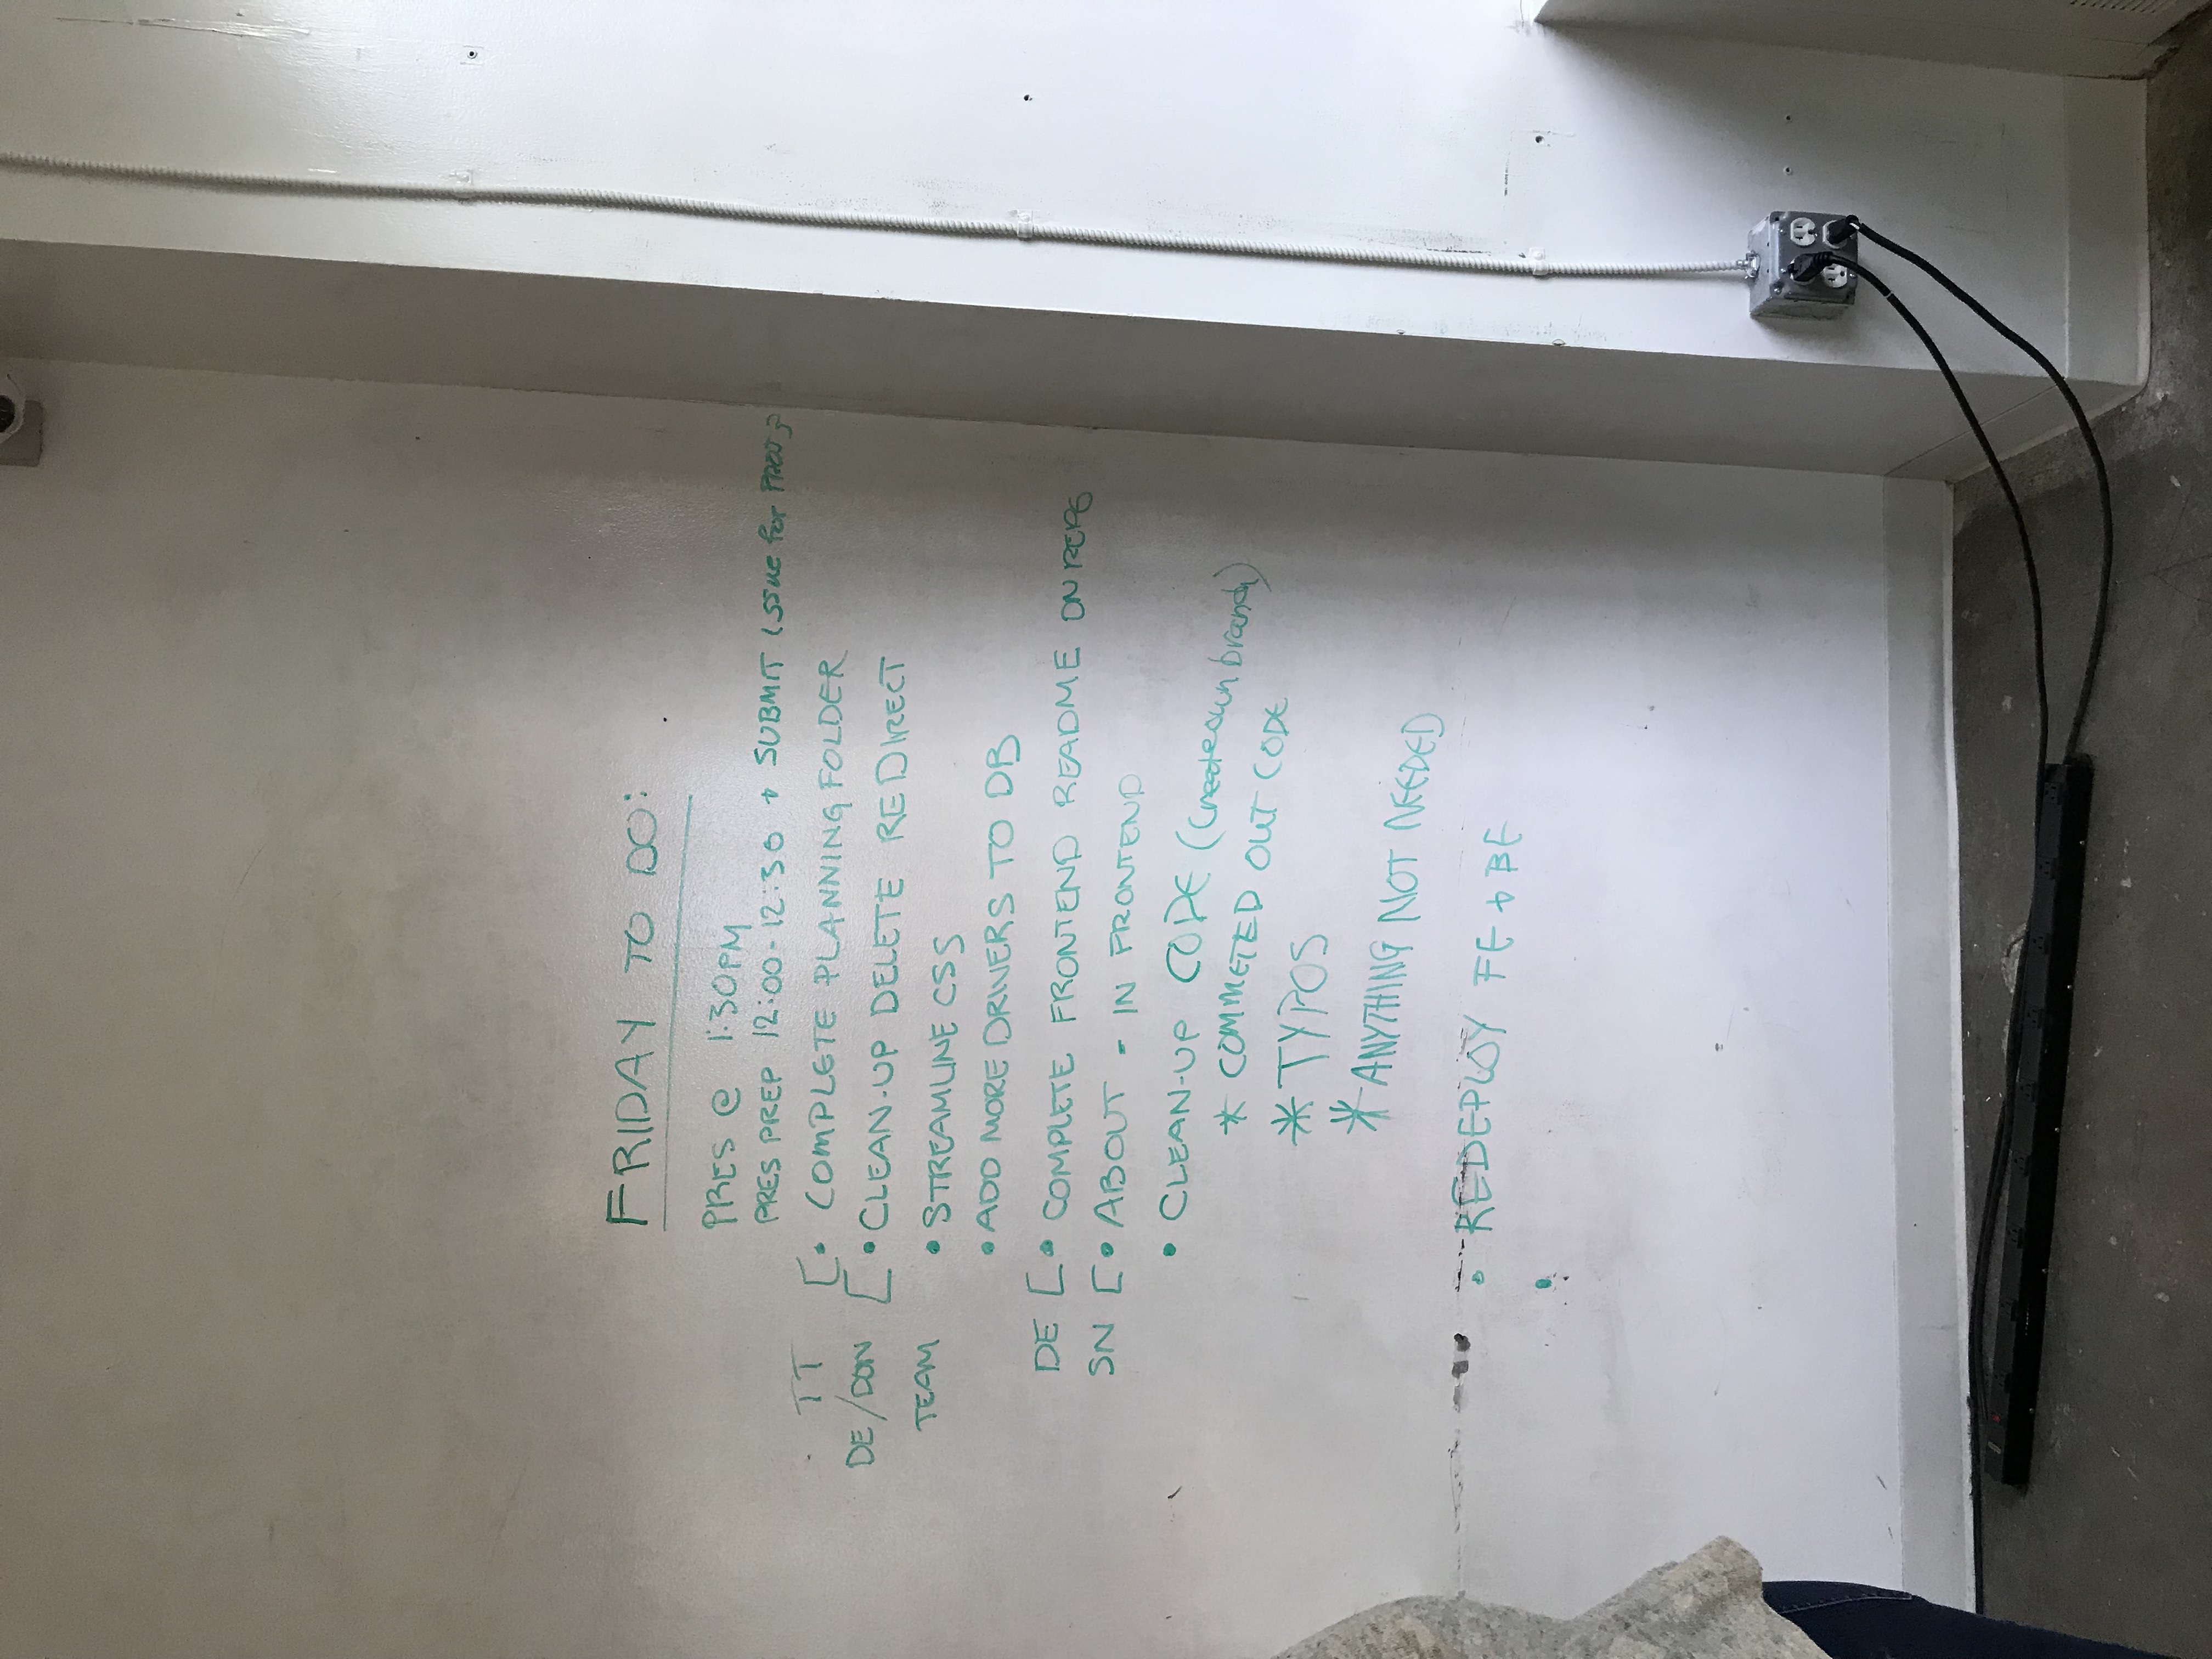 FRIDAY TO DO:
PRES @ 1:30PM
PRES PREP 12:00-12:30 + SUBMIT ISSUE for PROJ 3
TT [• COMPLETE PLANNING FOLDER
DE/DON [• CLEAN-UP DELETE REDIRECT
TEAM • STREAMLINE CSS
• ADD MORE DRIVERS TO DB
DE [• COMPLETE FRONTEND README ON REPO
SN [• ABOUT - IN FRONTEND
• CLEAN-UP CODE (Create own branch)
* COMMETED OUT CODE
* TYPOS
* ANYTHING NOT NEEDED
• REDEPLOY FE + BE
•